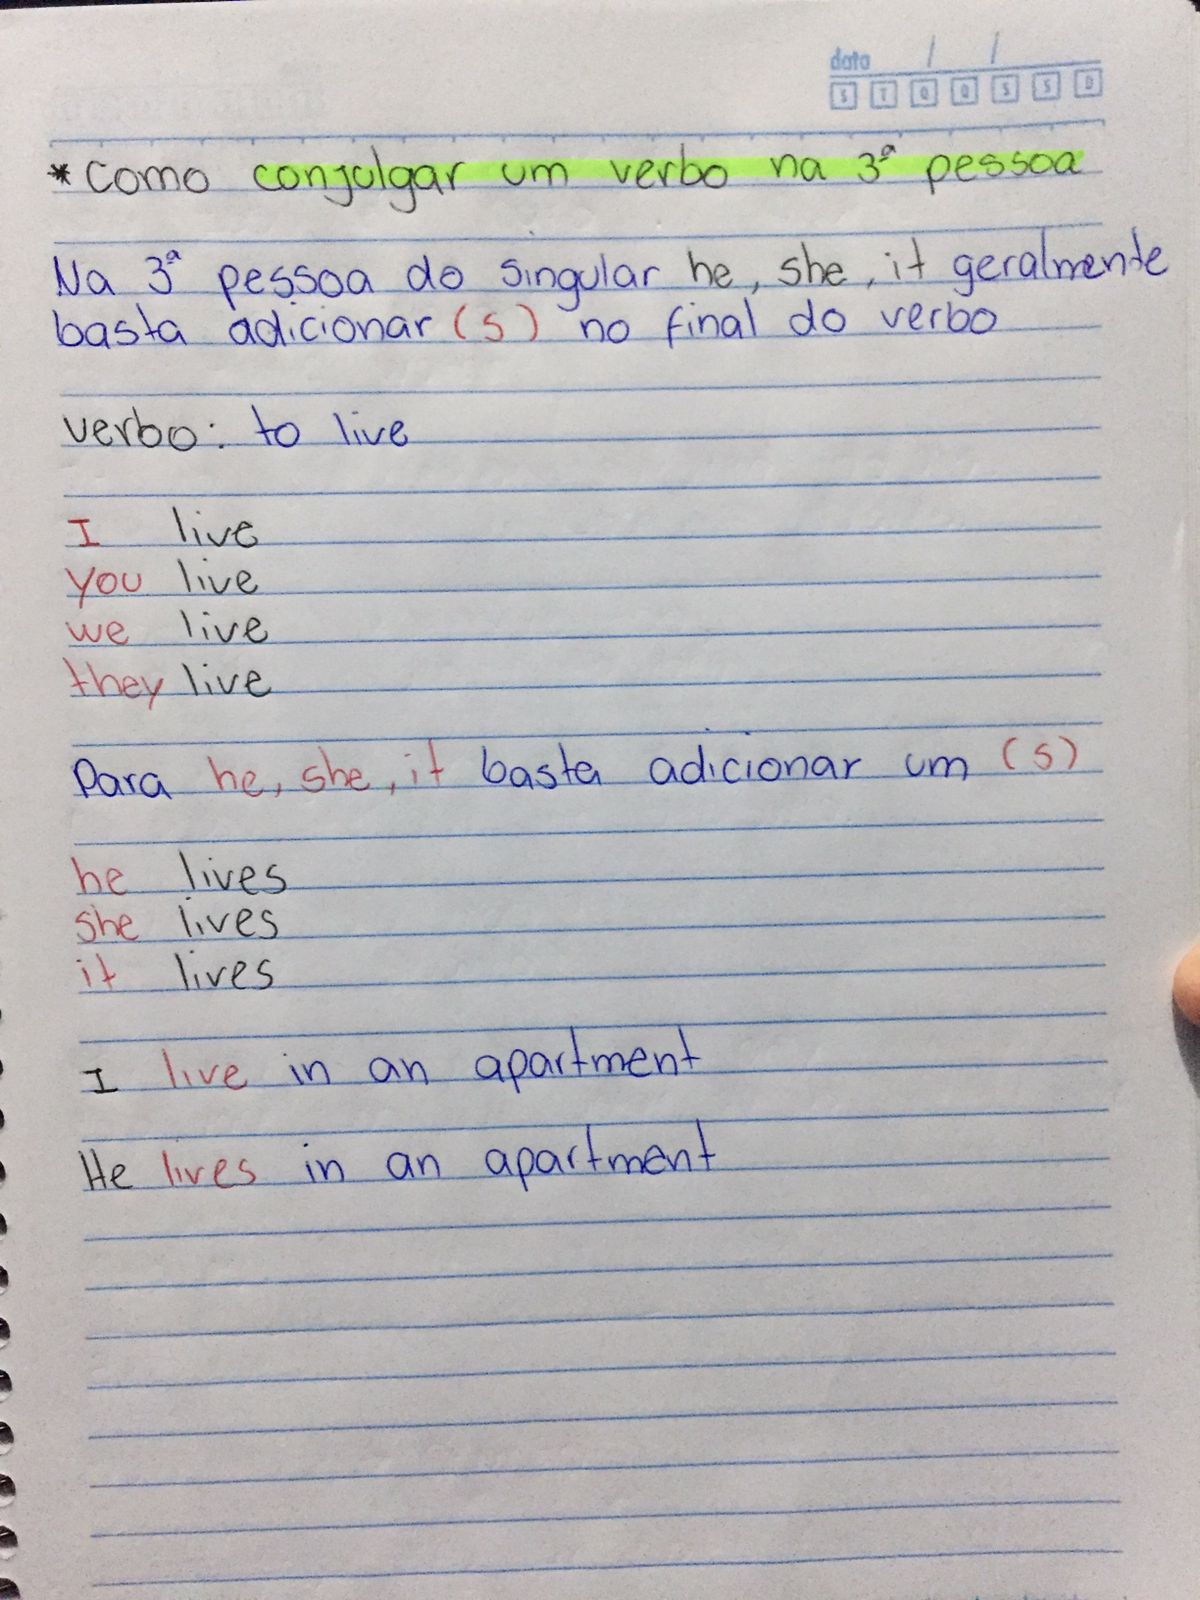 data / /
S T Q Q S S D
* Como conjulgar um verbo na 3ª pessoa
Na 3ª pessoa do singular he, she, it geralmente
basta adicionar (s) no final do verbo
verbo: to live
I live
you live
we live
they live
Para he, she, it basta adicionar um (s)
he lives
she lives
it lives
I live in an apartment
He lives in an apartment